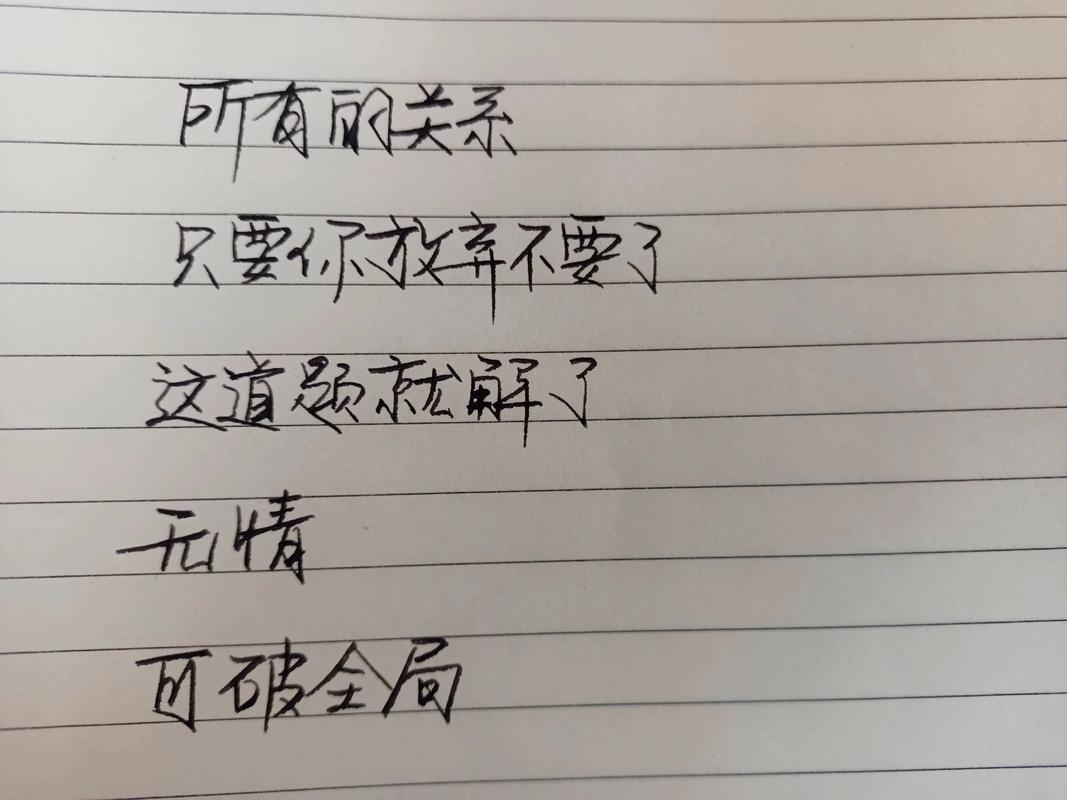 所有的关系
只要你放弃不要了
这道题就解了
无情
可破全局